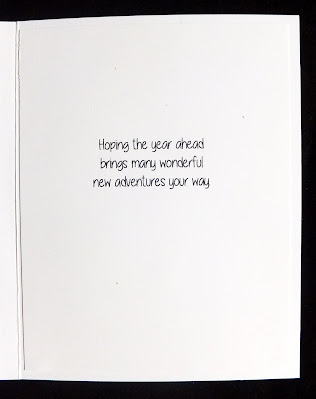 Hoping the year ahead
brings many wonderful
new adventures your way.